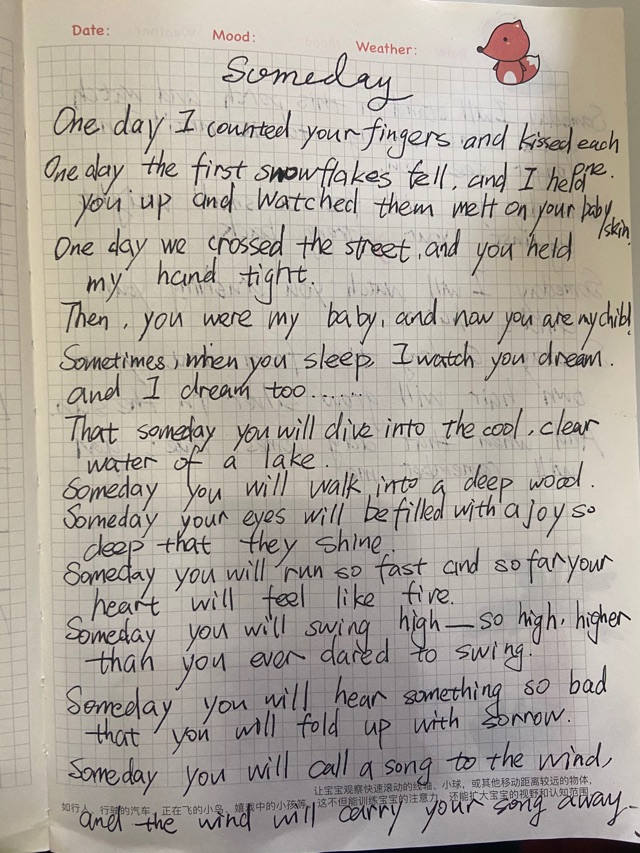 Date: Mood: Weather:
Someday
One day I counted your fingers and kissed each
one.
One day the first snowflakes fell, and I held
you up and watched them melt on your baby
skin.
One day we crossed the street, and you held
my hand tight.
Then, you were my baby, and now you are my child.
Sometimes, when you sleep, I watch you dream.
and I dream too......
That someday you will dive into the cool, clear
water of a lake.
Someday you will walk into a deep wood.
Someday your eyes will be filled with a joy so
deep that they shine.
Someday you will run so fast and so far your
heart will feel like fire.
Someday you will swing high — so high, higher
than you ever dared to swing.
Someday you will hear something so bad
that you will fold up with sorrow.
Someday you will call a song to the wind,
让宝宝观察快速滚动的线轴、小球，或其他移动距离较远的物体，
如行人、行驶的汽车、正在飞的小鸟、嬉戏中的小孩等，这不但能训练宝宝的注意力，还能扩大宝宝的视野和认知范围
and the wind will carry your song away—